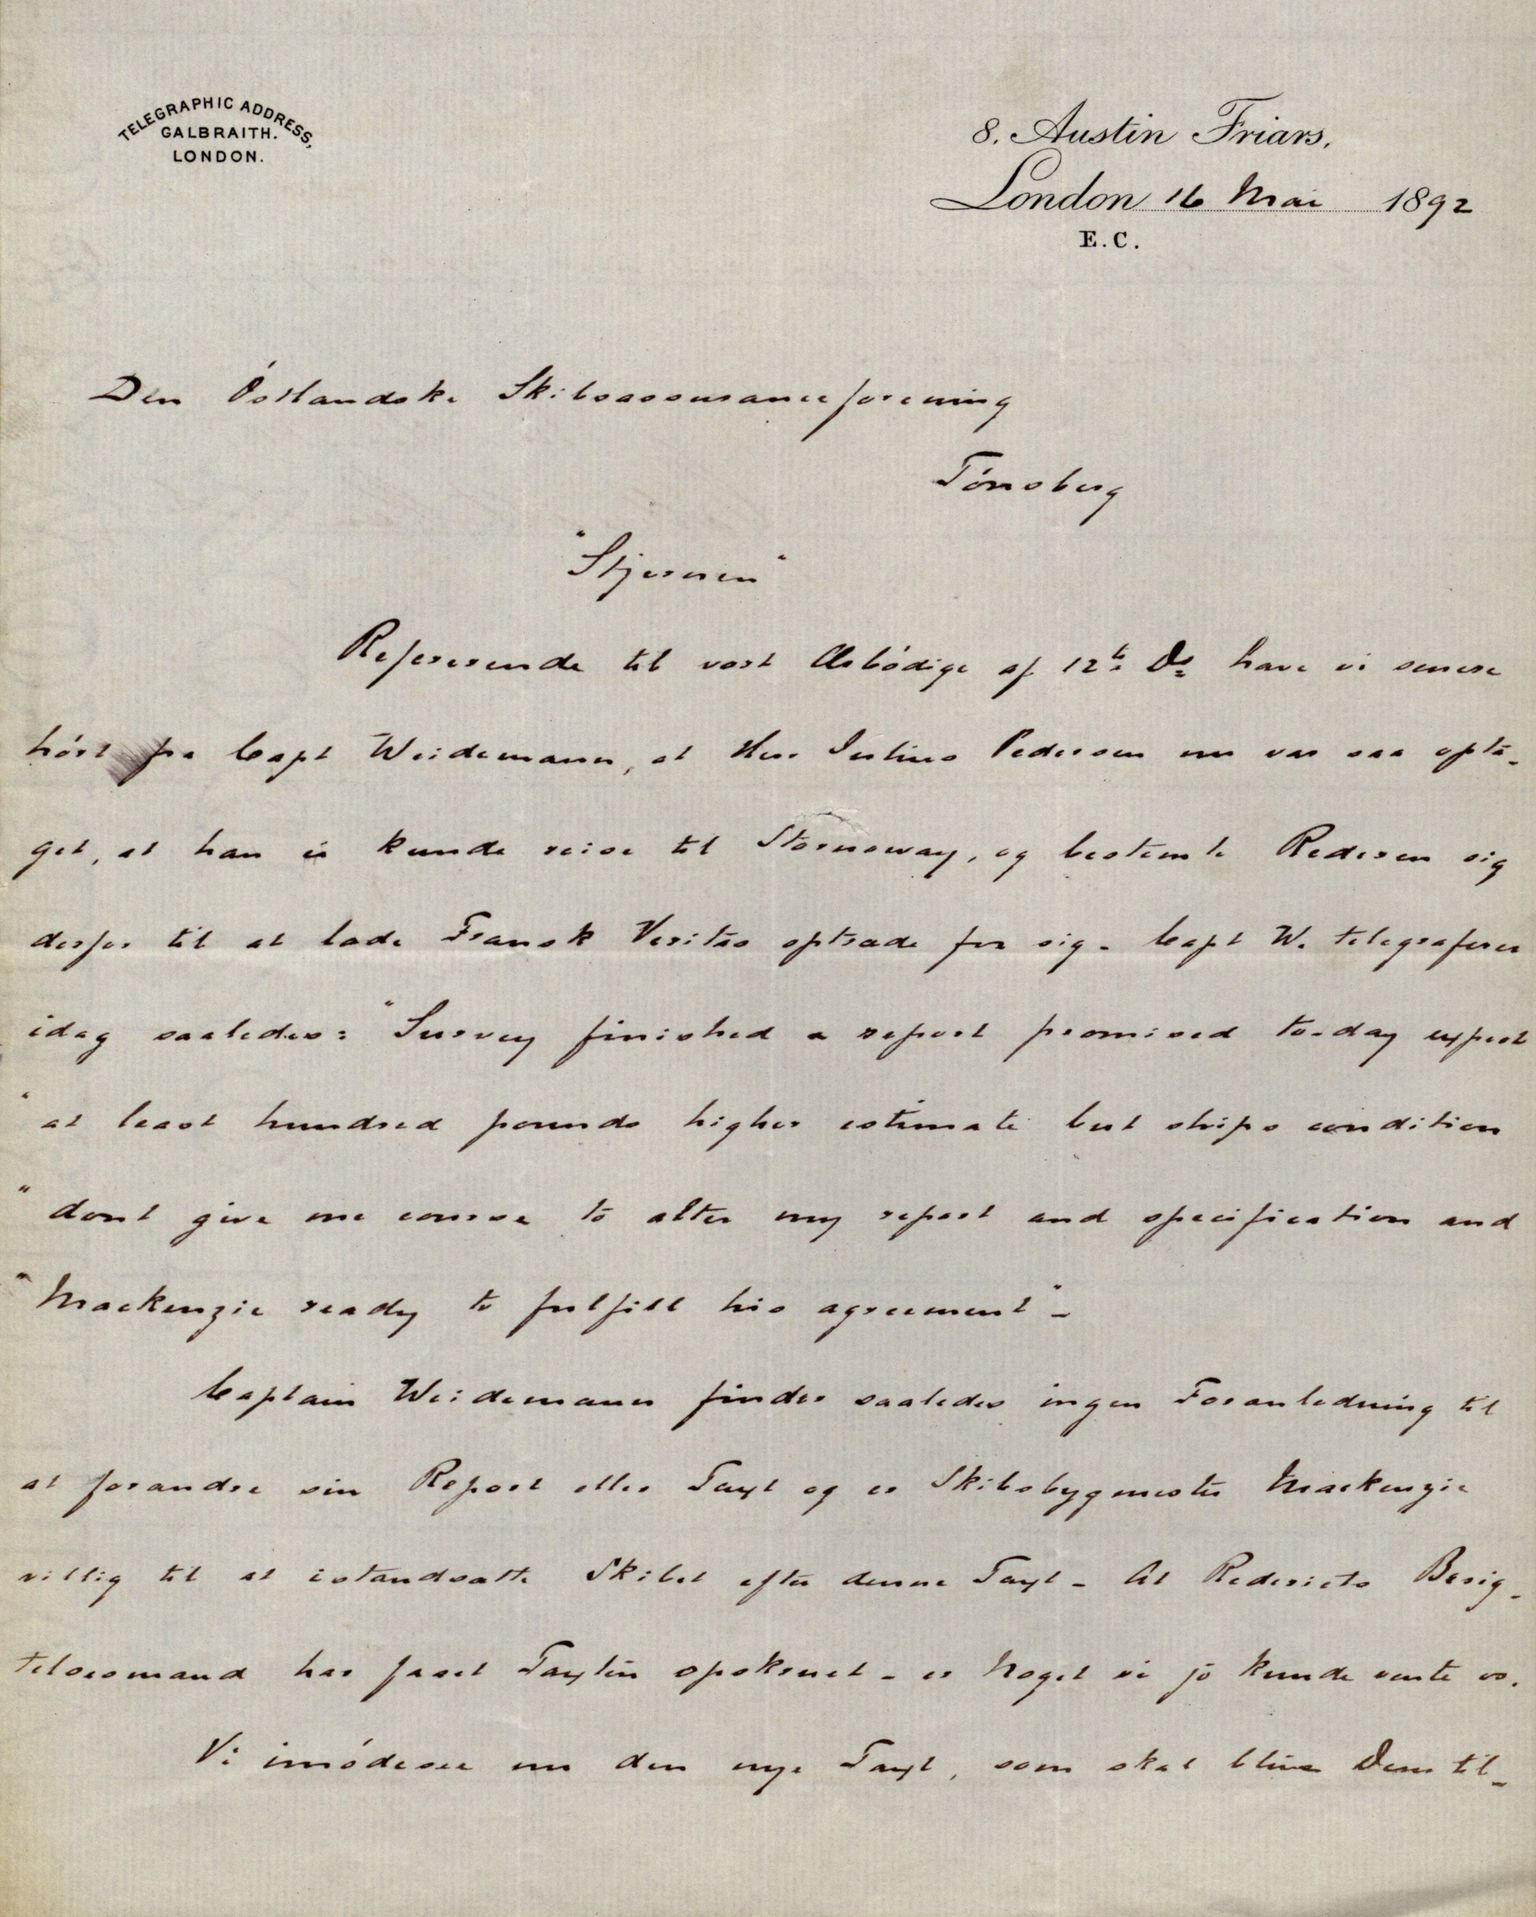 TELEGRAPHIC ADDRESS,
GALBRAITH.
LONDON.
8. Austin Friars,
London 16 Mai 1892
E.C.
Den Óstlandske Skibsassuranceforening
Tónsberg
"Stjernen"
Refererende til vort Ærbódige af 12te Ds have vi senere
hórt fra Capt Weidemann, at Herr Julius Pedersen nu var saa opta-
get, at han ei kunde reise til Stornoway, og bestemte Rederen sig
derfor til at lade Fransk Veritas optræde for sig. Capt W. telegraferer
idag saaledes: "Survey finished a report promised to-day expect
"at least hundred pounds higher estimate but ships condition
"dont give me course to alter my report and specification and
"Mackenzie ready to fulfill his agreement"-
Captain Weidemann finder saaledes ingen Foranledning til
at forandre sin Report eller Taxt og er Skibsbygmester Mackenzie
villig til at istandsætte Skibet efter denne Taxt - At Rederiets Besig-
telsesmand har faaet Taxten opskruet - er Noget vi jo kunde vente os.
Vi imódesee nu den nye Taxt, som skal blive Dem til-